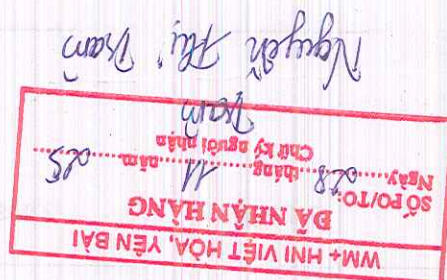 WM+ HNI VIỆT HÒA, YÊN BÁI
ĐÃ NHẬN HÀNG
SỐ PO/TO:
Ngày....28....tháng....11....năm....25....
Chữ ký người nhận
Tram
Nguyễn Thị Tram